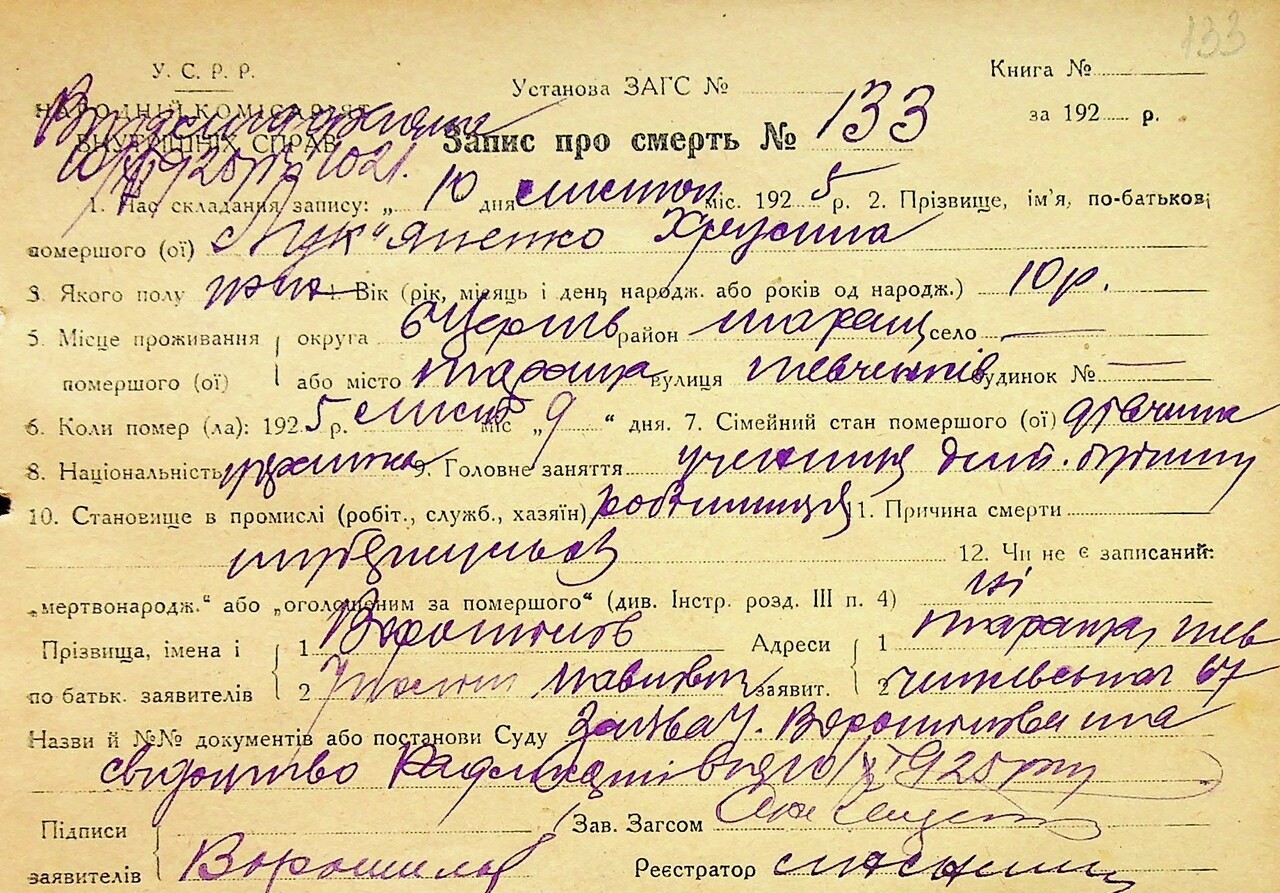 133
У. С. Р. Р.
НАРОДНІЙ КОМІСАРІЯТ
ВНУТРІШНІХ СПРАВ
Установа ЗАГС №
Книга №
за 192 р.
Запис про смерть № 133
10/XI 1925 р. № 1021.
1. Час складання запису: „ 10 дня листоп міс. 1925 р. 2. Прізвище, ім'я, по-батькові
помершого (ої) Лук"яненко
3. Якого полу жін 4. Вік (рік, місяць і день народж. або років од народж.) 10 р.
5. Місце проживання округа Б Церків район Таращ село —
помершого (ої) або місто Тараща вулиця Шевченків будинок № —
6. Коли помер (ла): 1925 р. листоп міс „ 9 “ дня. 7. Сімейний стан помершого (ої) дівчина
8. Національність українка 9. Головне заняття учениця дит. будинку
10. Становище в промислі (робіт., служб., хазяїн) робітниця 11. Причина смерти
туберкульоз 12. Чи не є записаний:
„мертвонародж.“ або „оголошеним за помершого“ (див. Інстр. розд. III п. 4) ні
Прізвища, імена і 1 Ворошилов Адреси 1 Тараща, Шев
по батьк. заявителів 2 Павлович заявит. 2 ченківська 67
Назви й №№ документів або постанови Суду Заява Ворошилова та
свідоцтво 1925 року
Підписи Зав. Загсом
заявителів Ворошилов Реєстратор